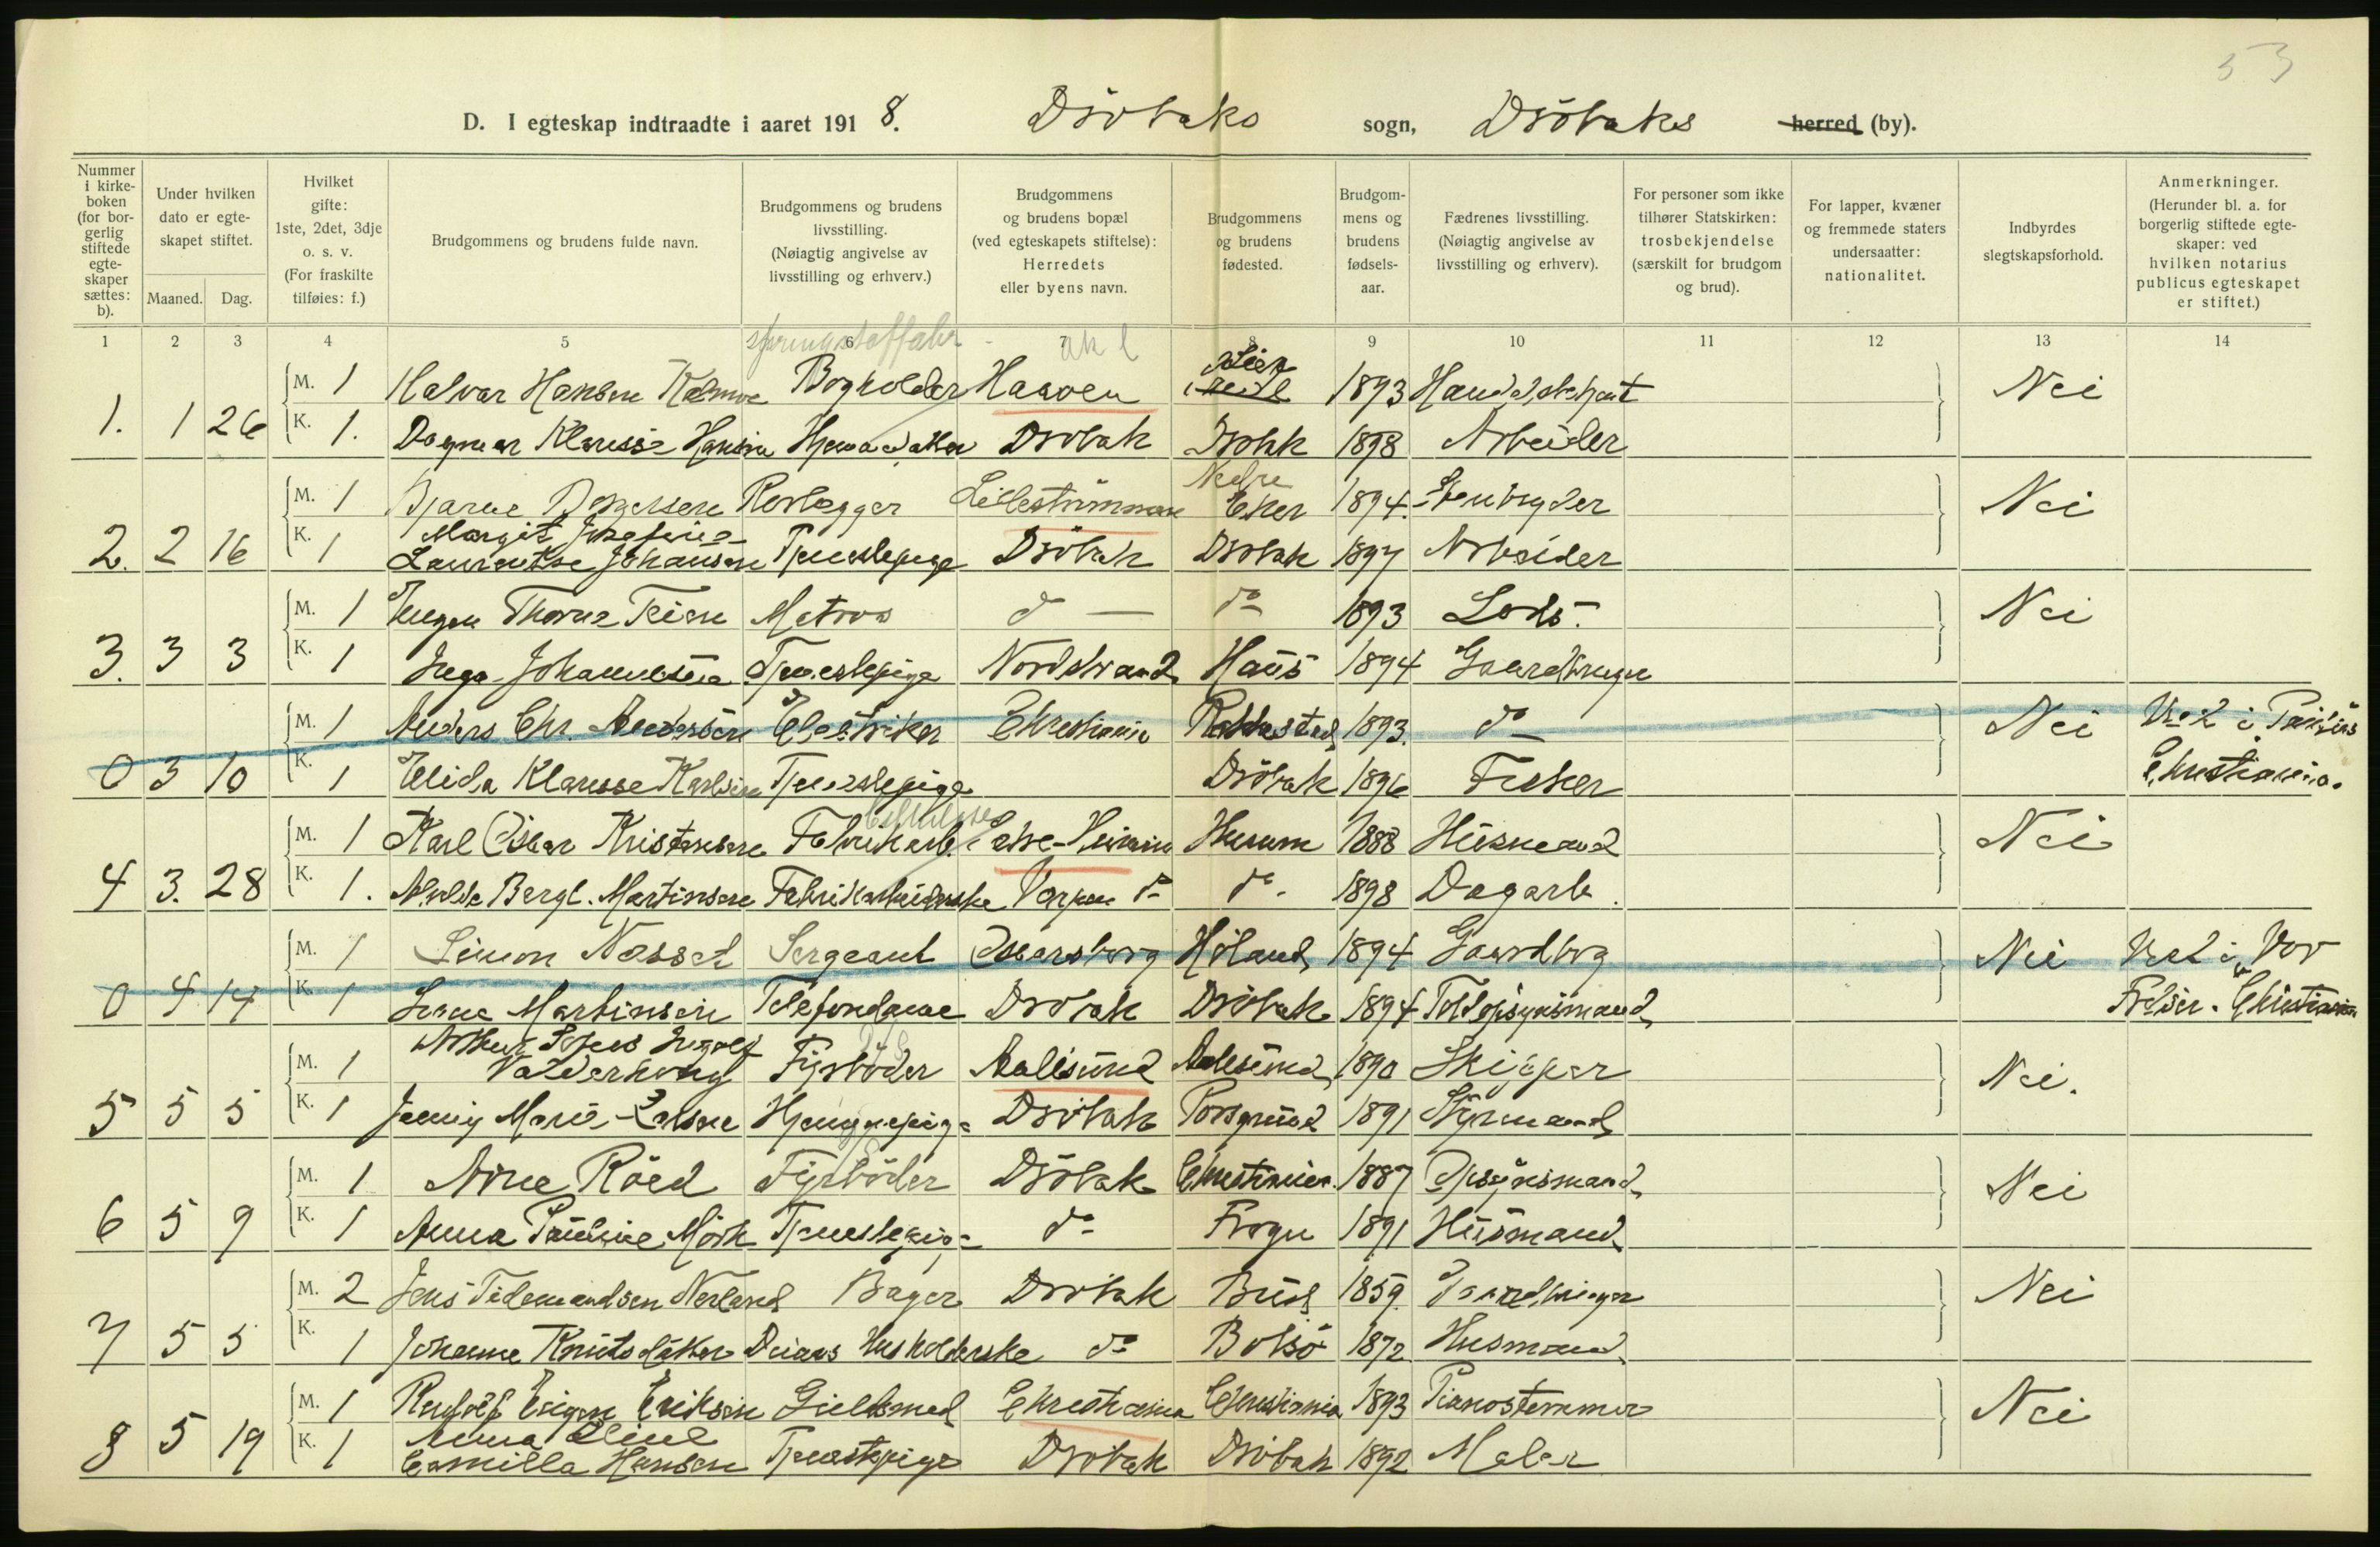 53
D. I egteskap indtraadte i aaret 1918. Drøbaks sogn, Drøbaks herred (by).
Nummer i kirke-boken (for bor-gerlig stiftede egte-skaper sættes: b).
Under hvilken dato er egte-skapet stiftet.
Maaned. Dag.
Hvilket gifte: 1ste, 2det, 3dje o. s. v. (For fraskilte tilføies: f.)
Brudgommens og brudens fulde navn.
Brudgommens og brudens livsstilling. (Nøiagtig angivelse av livsstilling og erhverv.)
Brudgommens og brudens bopæl (ved egteskapets stiftelse): Herredets eller byens navn.
Brudgommens og brudens fødested.
Brudgom-mens og brudens fødsels-aar.
Fædrenes livsstilling. (Nøiagtig angivelse av livsstilling og erhverv).
For personer som ikke tilhører Statskirken: trosbekjendelse (særskilt for brudgom og brud).
For lapper, kvæner og fremmede staters undersaatter: nationalitet.
Indbyrdes slegtskapsforhold.
Anmerkninger. (Herunder bl. a. for borgerlig stiftede egte-skaper: ved hvilken notarius publicus egteskapet er stiftet.)
1 2 3 4 5 6 7 8 9 10 11 12 13 14
M. 1 Halvor Hansen Bogholder Lier 1893 Nei
1. 1 26 K. 1. Dagmar Klarisse Hansen Drøbak Drøbk 1898 Arbeider
M. 1 Bjarne Rørlægger Lillestrømmen Nedre Eker 1894. Nei
2. 2 16 K. 1 Margit Josefine Lauentse Johansen Tjenestepige Drøbak Drøbak 1897 Arbeider
M. 1 Eugen Thorne Matros do do 1893 Lods. Nei
3. 3 3 K. 1 Inga Johannesen Tjenestepige Nordstrand Haus 1894 Gaardbruger
M. 1 Anders Chr. Andersen Elektriker Christiania Rakkestad 1893. do Nei Viet i Paulus
0 3 10 K. 1 Elida Klarisse Karlsen Tjenestepige Drøbak 1896 Fisker Christiania.
M. 1 Karl Oskar Kristensen Fabrikarb. Hurum 1888 Husmand Nei
4 3. 28 K. 1. Bergl. Martinsen Fabrikarbeiderske do do. 1898 Dagarb.
M. 1 Simon Nasset Sergeant Oscarsborg Høland 1894 Gaardbrg Nei Viet i Vor
0 4 14 K. 1 Martinsen Telefondame Drøbak Drøbak 1894 Toldopsynsmand Frelser. Christiania
M. 1 Arthur Ingolf Valderhoug Fyrbøder Aalesund Aalesund 1890 Skipper Nei.
5 5 5 K. 1 Jenny Marie Larsen Drøbak Porsgrund 1891 Styrmand
M. 1 Arne Røed Fyrbøder Drøbak Christiania 1887 Opsynsmand Nei
6 5 9 K. 1 Anna Pauline Mørk Tjenestepige do Frogn 1891 Husmand
M. 2 Jens Tidemandsen Nerland Bager Drøbak Bud 1859. Gaardbruger Nei
7 5 5 K. 1 Johanne Knutsdatter Husholderske do Bolsø 1872 Husmand
M. 1 Rudolf Eugen Eriksen Gullsmed Christiania Christiania 1893 Pianostemmer Nei
8 5 19 K. 1 Anna Camilla Hansen Tjenestepige Drøbak Drøbak 1892 Maler